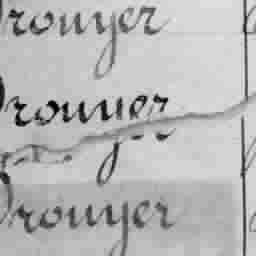 Drouyer
Drouyer
Drouyer